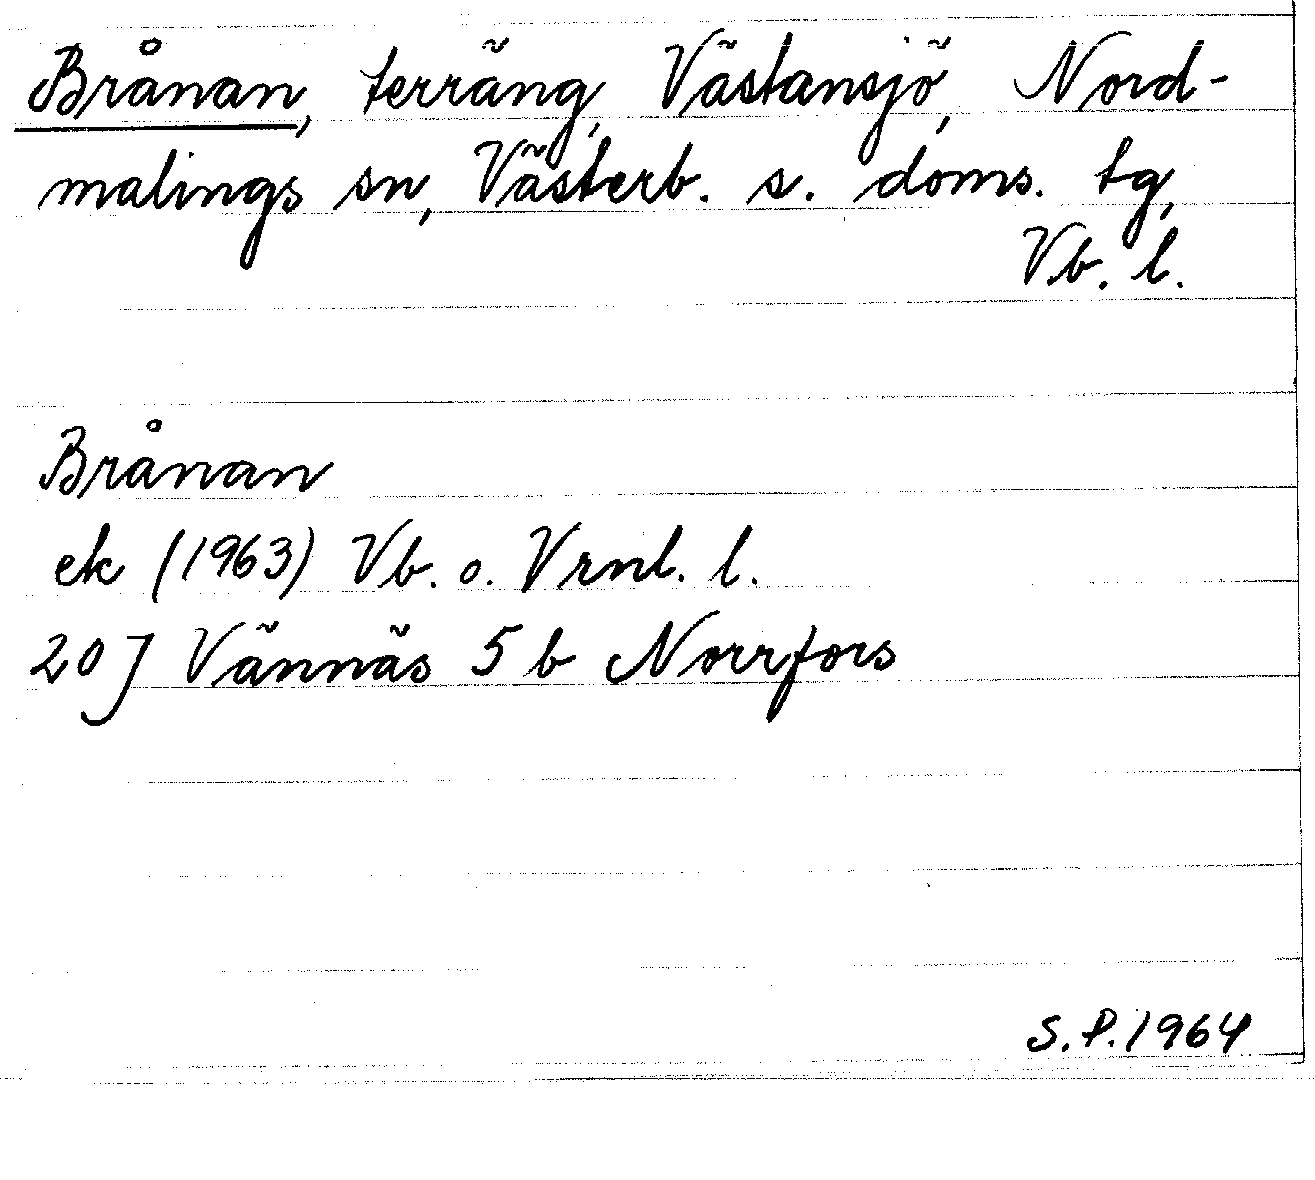 Brånan, terräng, Västansjö, Nord-
malings sn, Västerb. s. doms. tg,
Vb. l.
Brånan
ek (1963) Vb. o. Vrnl. l.
20 J Vännäs 5 b Norrfors
S.P. 1964